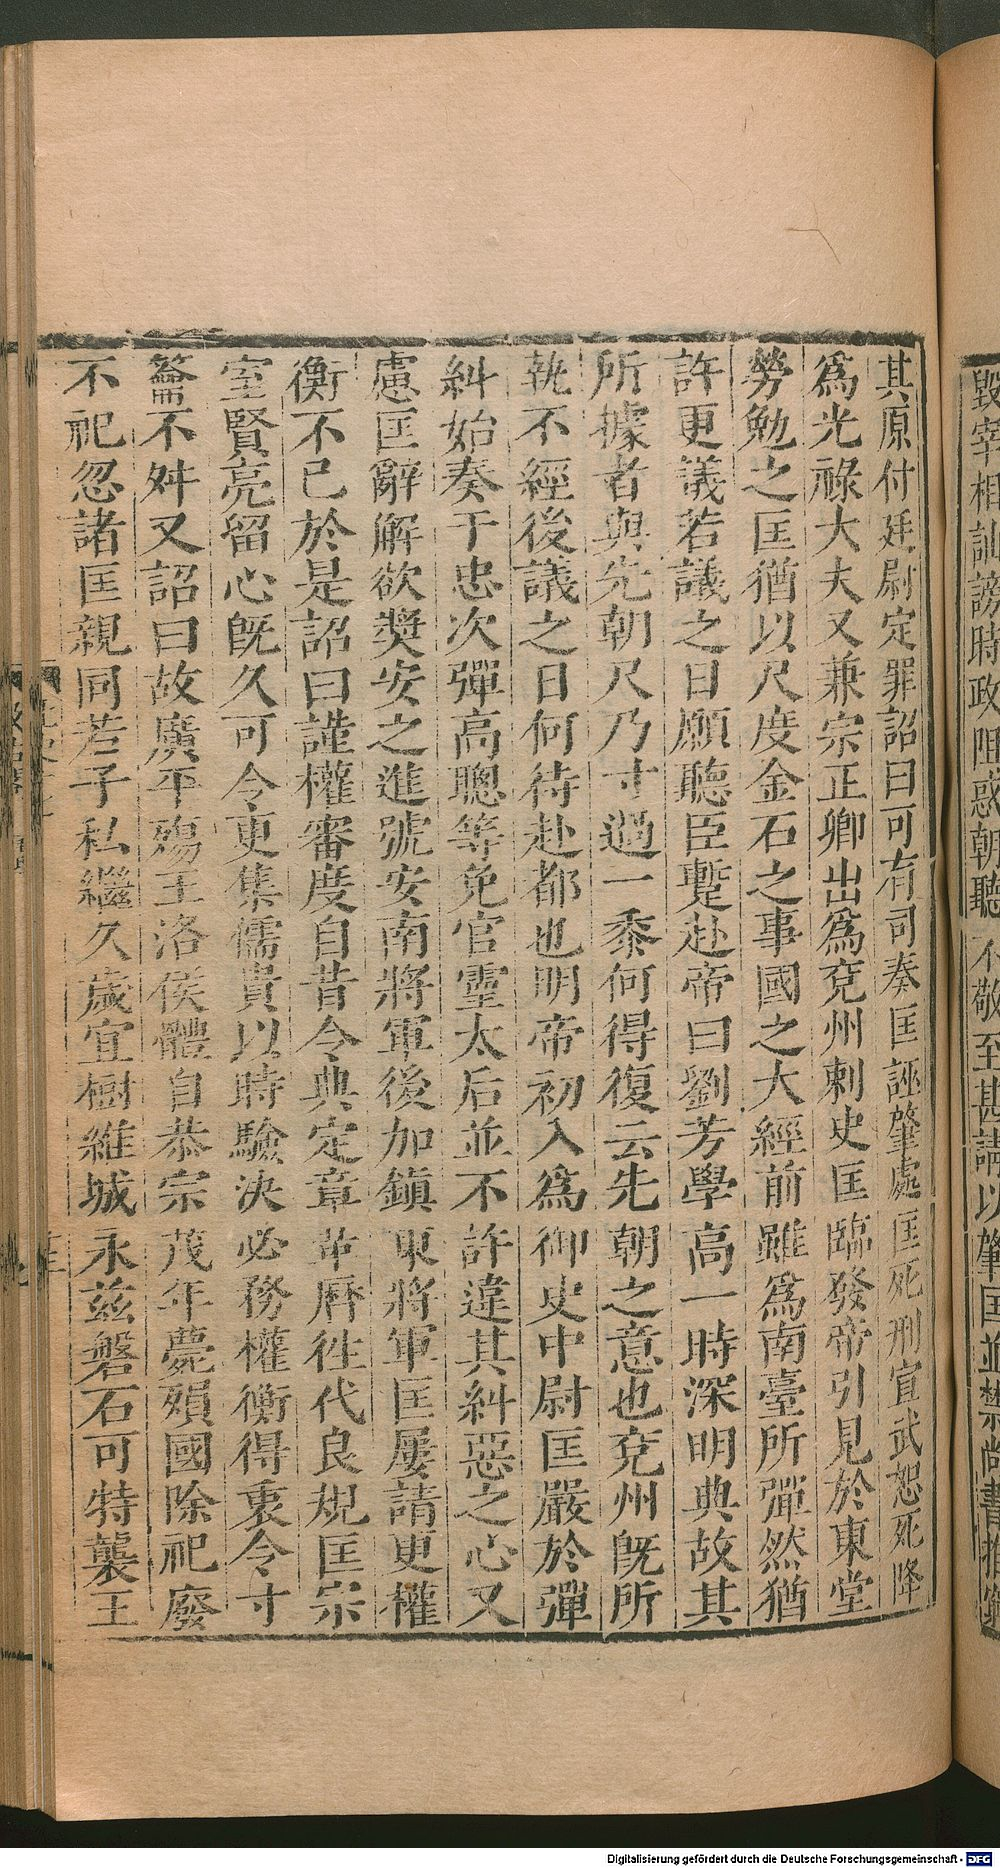 毀宰相訕謗時政阻惑朝聽不敬至甚請以肇匡並禁尚書推窮
其原付廷尉定罪詔曰可有司奏匡誣肇處匡死刑宣武恕死降
爲光祿大夫又兼宗正卿出爲兗州刺史匡臨發帝引見於東堂
勞勉之匡猶以尺度金石之事國之大經前雖爲南臺所彈然猶
許更議若議之日願聽臣蹔赴帝曰劉芳學高一時深明典故其
所據者與先朝尺乃寸過一黍何得復云先朝之意也兗州旣所
執不經後議之日何待赴都也明帝初入爲御史中尉匡嚴於彈
糾始奏于忠次彈高聰等免官靈太后並不許違其糾惡之心又
慮匡辭解欲奬安之進號安南將軍後加鎭東將軍匡屢請更權
衡不已於是詔曰謹權審度自昔令典定章革曆徃代良規匡宗
室賢亮留心旣久可令更集儒貴以時驗決必務權衡得衷令寸
籥不舛又詔曰故廣平殤王洛侯體自恭宗茂年薨殞國除祀廢
不祀忽諸匡親同若子私繼久歲宜樹維城永茲磐石可特襲王
Digitalisierung gefördert durch die Deutsche Forschungsgemeinschaft - DFG